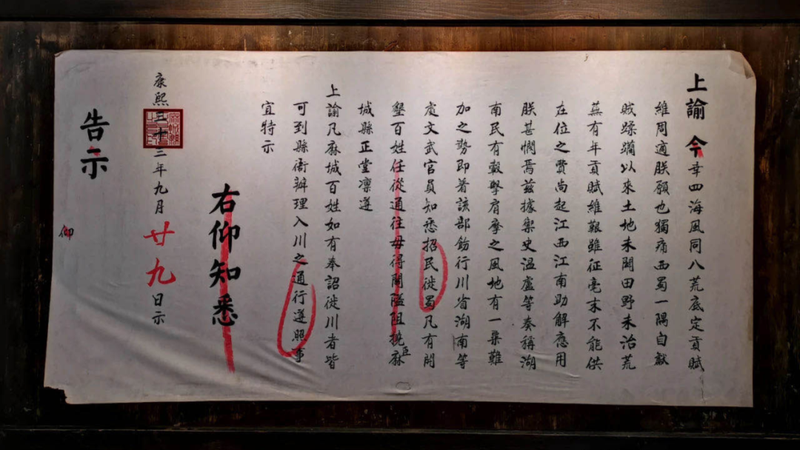 上諭 今幸四海風同八荒底定貢賦
維周適朕願也獨痛西蜀一隅自獻
賊蹂躪以來土地未闢田野未治荒
蕪有年貢賦維艱雖征毫末不能供
在位之費尚起江西江南助解應用
朕甚憫焉茲據禦史溫盧等奏稱湖
南民有轂擊肩摩之風地有一粟難
加之勢即著該部飭行川省湖南等
處文武官員知悉招民徙蜀凡有開
墾百姓任從通往毋得關隘阻撓麻
城縣正堂凜遵
上諭凡麻城百姓如有奉詔徙川者皆
可到縣衙辦理入川之通行遵照事
宜特示
右仰知悉
康熙三十二年九月廿九日示
告示
仰